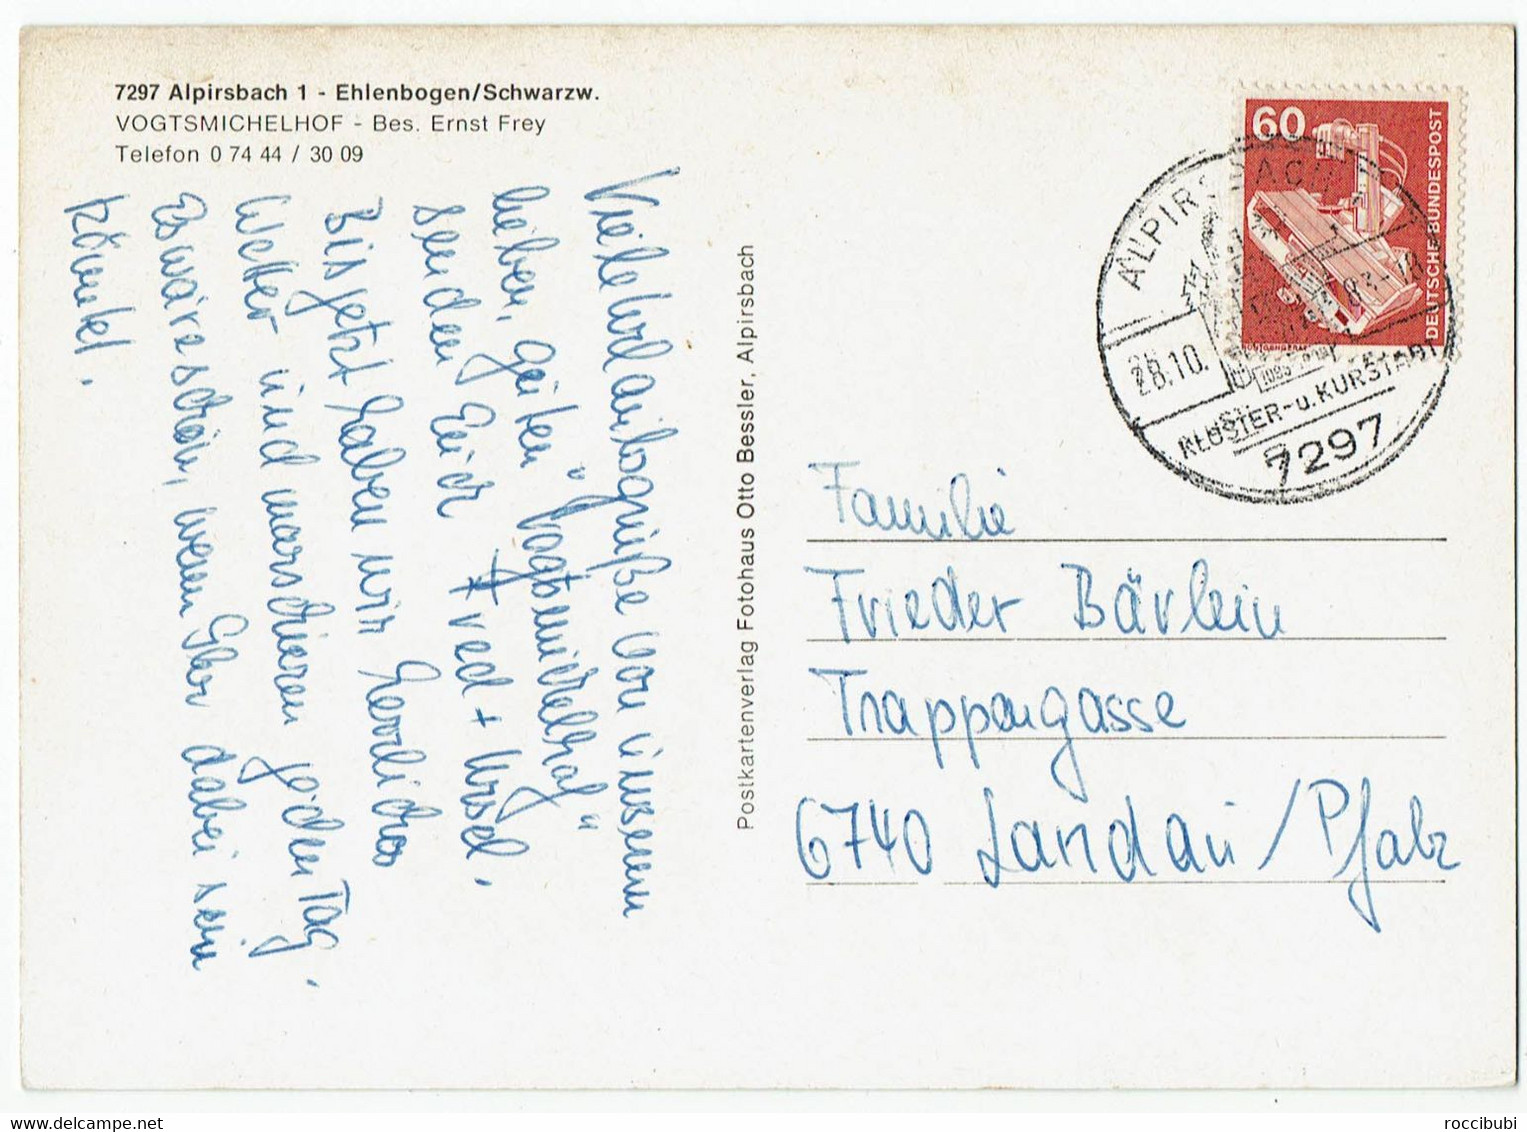 7297 Alpirsbach 1 - Ehlenbogen/Schwarzw.
VOGTSMICHELHOF - Bes. Ernst Frey
Telefon 0 74 44 / 30 09
Viele Urlaubsgrüße von unserem
lieben, guten „Vogtsmichelhof“
senden Euch Fred + Ursel.
Bis jetzt haben wir herrliches
Wetter und marschieren jeden Tag.
Es wäre schön, wenn Ihr dabei sein
könntet.
Postkartenverlag Fotohaus Otto Bessler, Alpirsbach
60
DEUTSCHE BUNDESPOST
ALPIRSBACH
28.10.
83-18
KLOSTER-u.KURSTADT
7297
Familie
Frieder Bärlein
Trappengasse
6740 Landau/Pfalz
delcampe.net
roccibubi